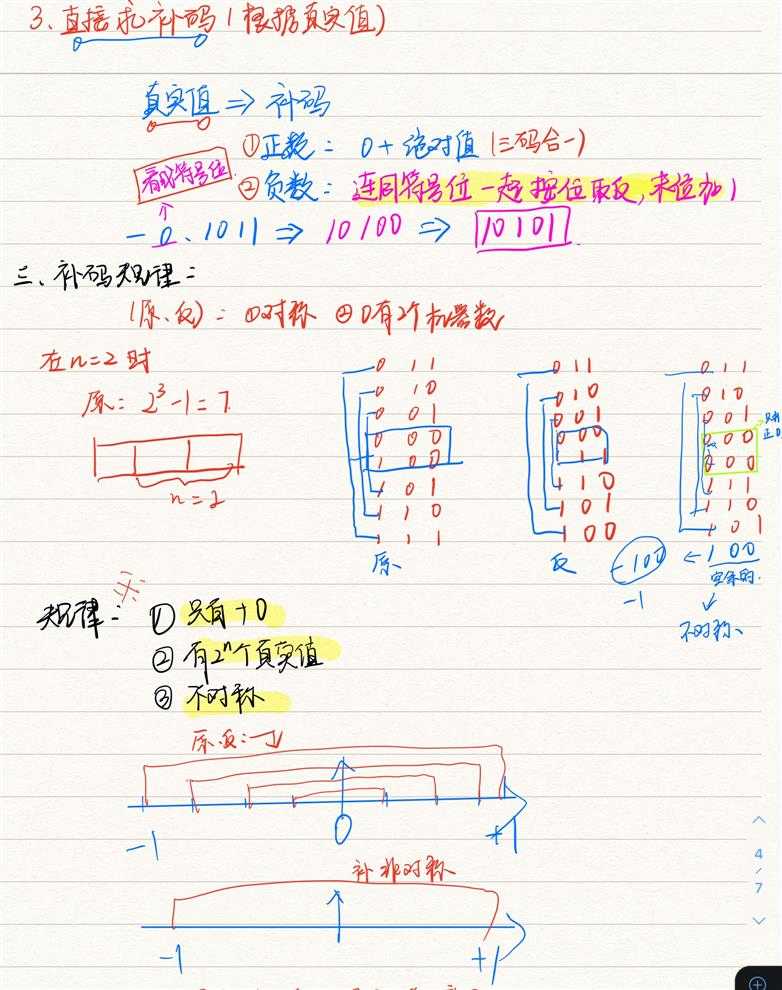 3、直接求补码(根据真实值)
真实值 => 补码
①正数: 0+绝对值 (三码合一)
看成符号位
②负数: 连同符号位一起按位取反,末位加1
-0.1011 => 10100 => 10101
三、补码规律:
(原、反): ①对称 ②0有2个机器数
在n=2时
原: 2³-1=7
n=2
0 11
0 10
0 01
0 00
1 00
1 01
1 10
1 11
原
0 11
0 10
0 01
000
1 1
1 10
1 01
1 00
反
0 11
0 10
0 01
0 00
0 00
1 11
1 10
1 01
只有
正0
-100 ← 1 00
-1
实际的
不对称、
规律: ① 只有+0
② 有2ⁿ个真实值
③ 不对称
原、反:
-1 0 +1
补非对称
-1 +1
4/7